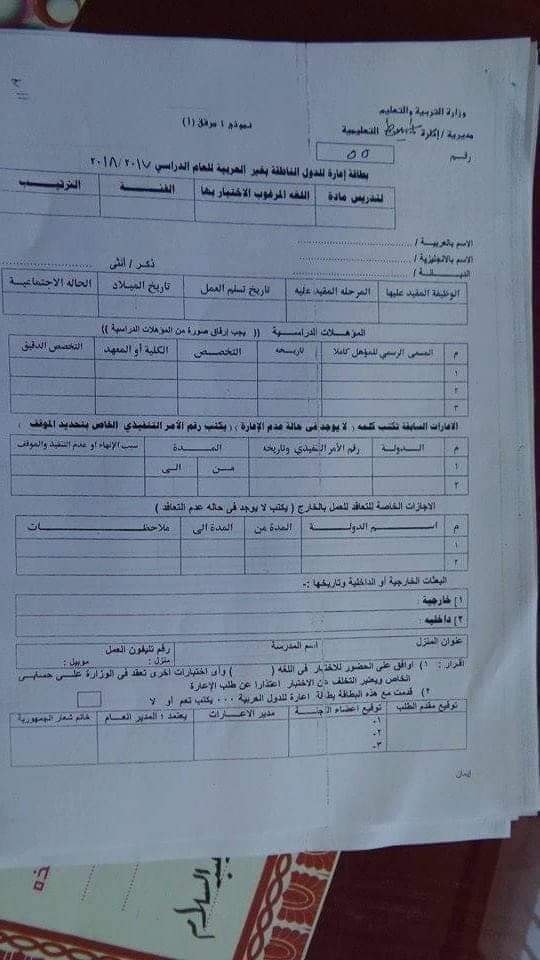 وزارة التربية والتعليم
مديرية / إدارة التعليمية
نموذج ١ مرفق (١)
رقم
٥٥
بطاقة إعارة للدول الناطقة بغير العربية للعام الدراسي ٢٠١٧ / ٢٠١٨
لتدريس مادة اللغه المرغوب الاختبار بها الفئـــة الترتيب
الاسم بالعربيـة /
الاسم بالانجليزية /
الديـانـــة / ذكر / أنثى
الوظيفة المقيد عليها المرحله المقيد عليه تاريخ تسلم العمل تاريخ الميلاد الحاله الاجتماعية
المؤهلات الدراسـية (( يجب إرفاق صورة من المؤهلات الدراسية ))
م المسمى الرسمي للمؤهل كاملا تاريخـه التخصص الكلية أو المعهد التخصص الدقيق
١
٢
٣
الاعارات السابقة تكتب كلمه ( لا يوجد فى حالة عدم الإعارة ) ( يكتب رقم الأمر التنفيذي الخاص بتحديد الموقف
م الـدولـــة رقم الأمر التنفيذي وتاريخه المـــدة سبب الإنهاء او عدم التنفيذ والموقف
١ مـن الـى
٢
الاجازات الخاصة للتعاقد للعمل بالخارج ( يكتب لا يوجد فى حاله عدم التعاقد )
م اســـم الدولـــة المدة من المدة الى ملاحظـــات
١
٢
البعثات الخارجية أو الداخلية وتاريخها :-
١) خارجية :
٢) داخليه :
عنوان المنزل اسم المدرسة رقم تليفون العمل
منزل : موبيل :
اقرار : ١) اوافق على الحضور للاختبار فى اللغه ( ) وأى اختبارات أخرى تعقد فى الوزارة علـى حسابى
الخاص ويعتبر التخلف عن الاختبار اعتذارا عن طلب الإعارة
٢) قدمت مع هذه البطاقة بطاقة اعارة للدول العربية ٠٠٠ يكتب نعم أو لا
توقيع مقدم الطلب توقيع اعضاء اللجنة مدير الاعارات يعتمد ؛ المدير العام خاتم شعار الجمهورية
١-
٢-
٣-
إيمان
السلام